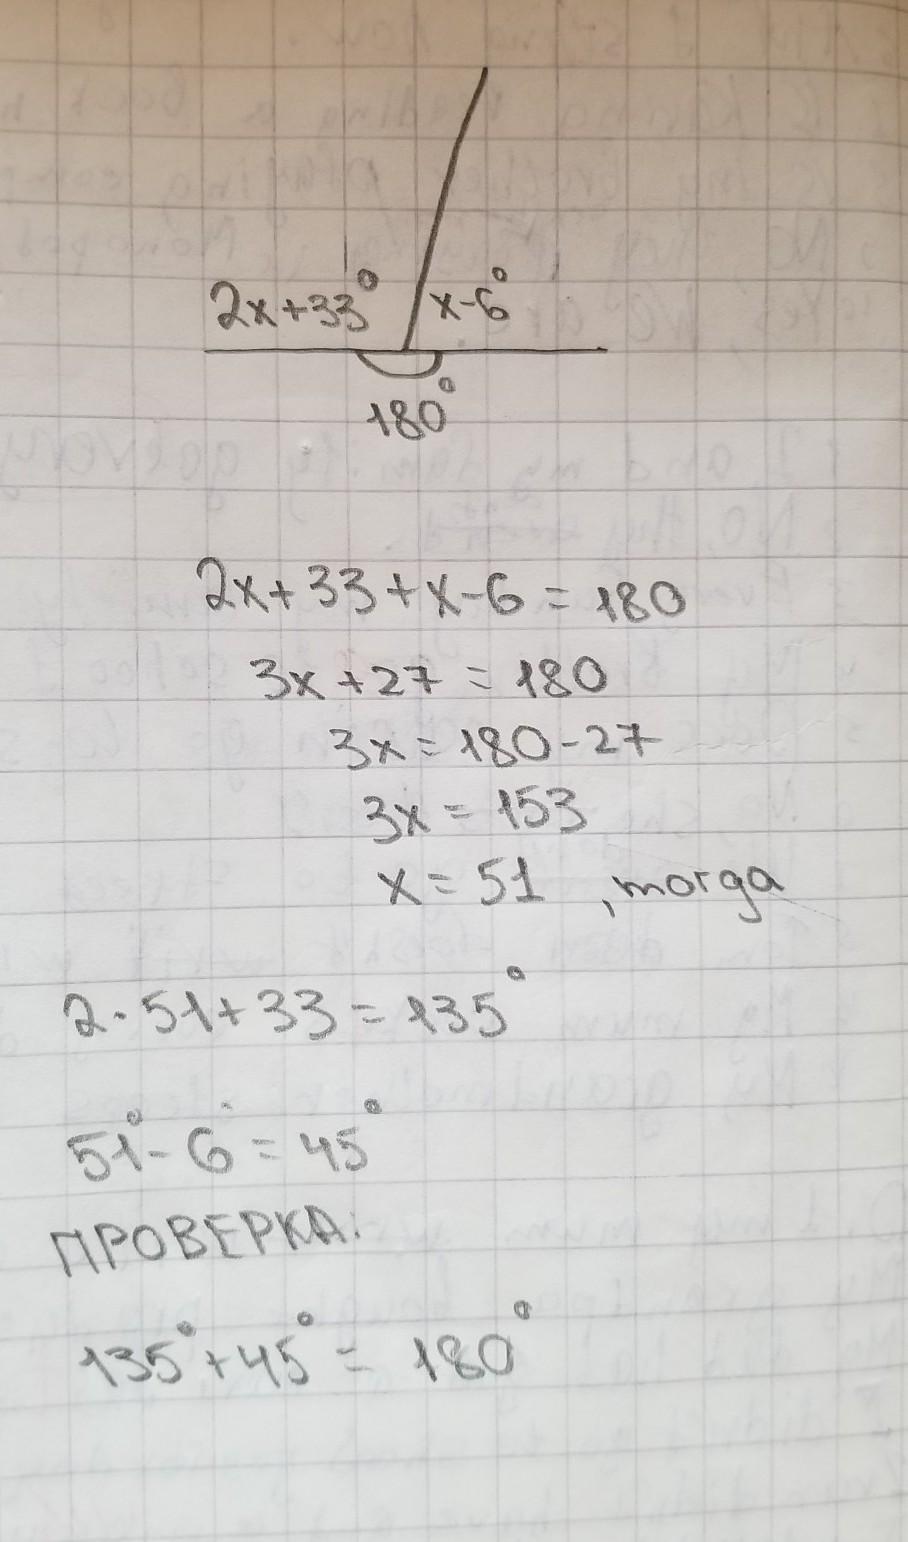 2x+33° x-6°
180°
2x+33+x-6=180
3x+27=180
3x=180-27
3x=153
x=51 ,тогда
2·51+33=135°
51°-6°=45°
ПРОВЕРКА:
135°+45°=180°